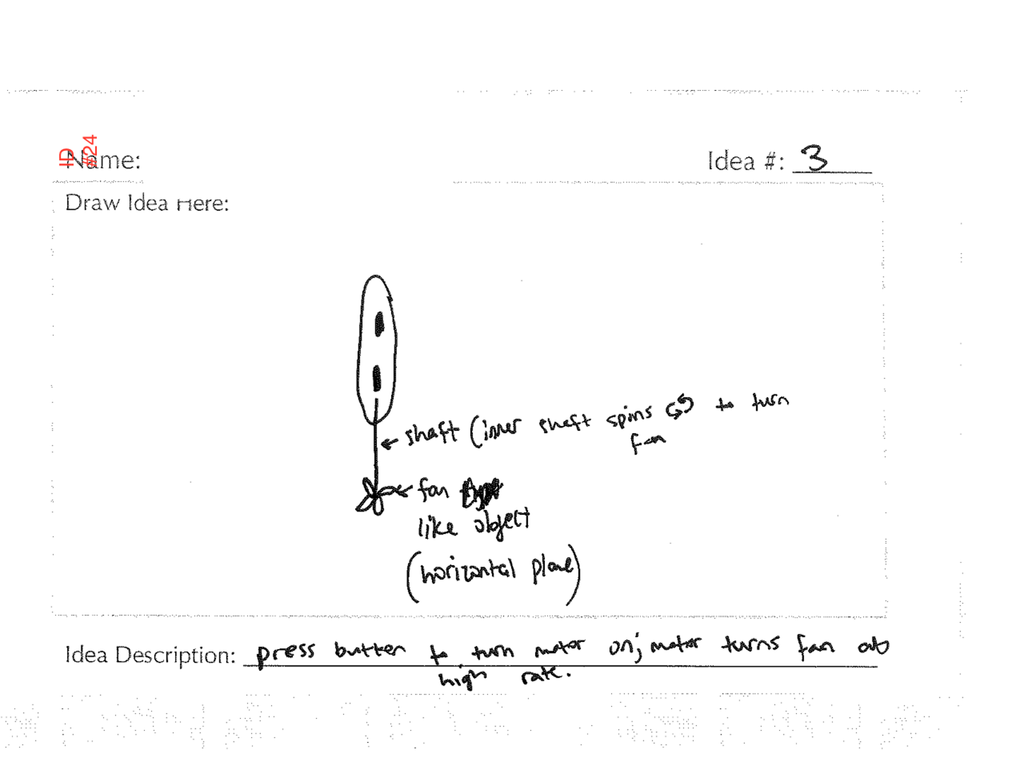 ID #24
Name:
Idea #: 3
Draw Idea Here:
shaft (inner shaft spins to turn
fan
fan
like object
(horizontal plane)
Idea Description: press button to turn motor on; motor turns fan at
high rate.